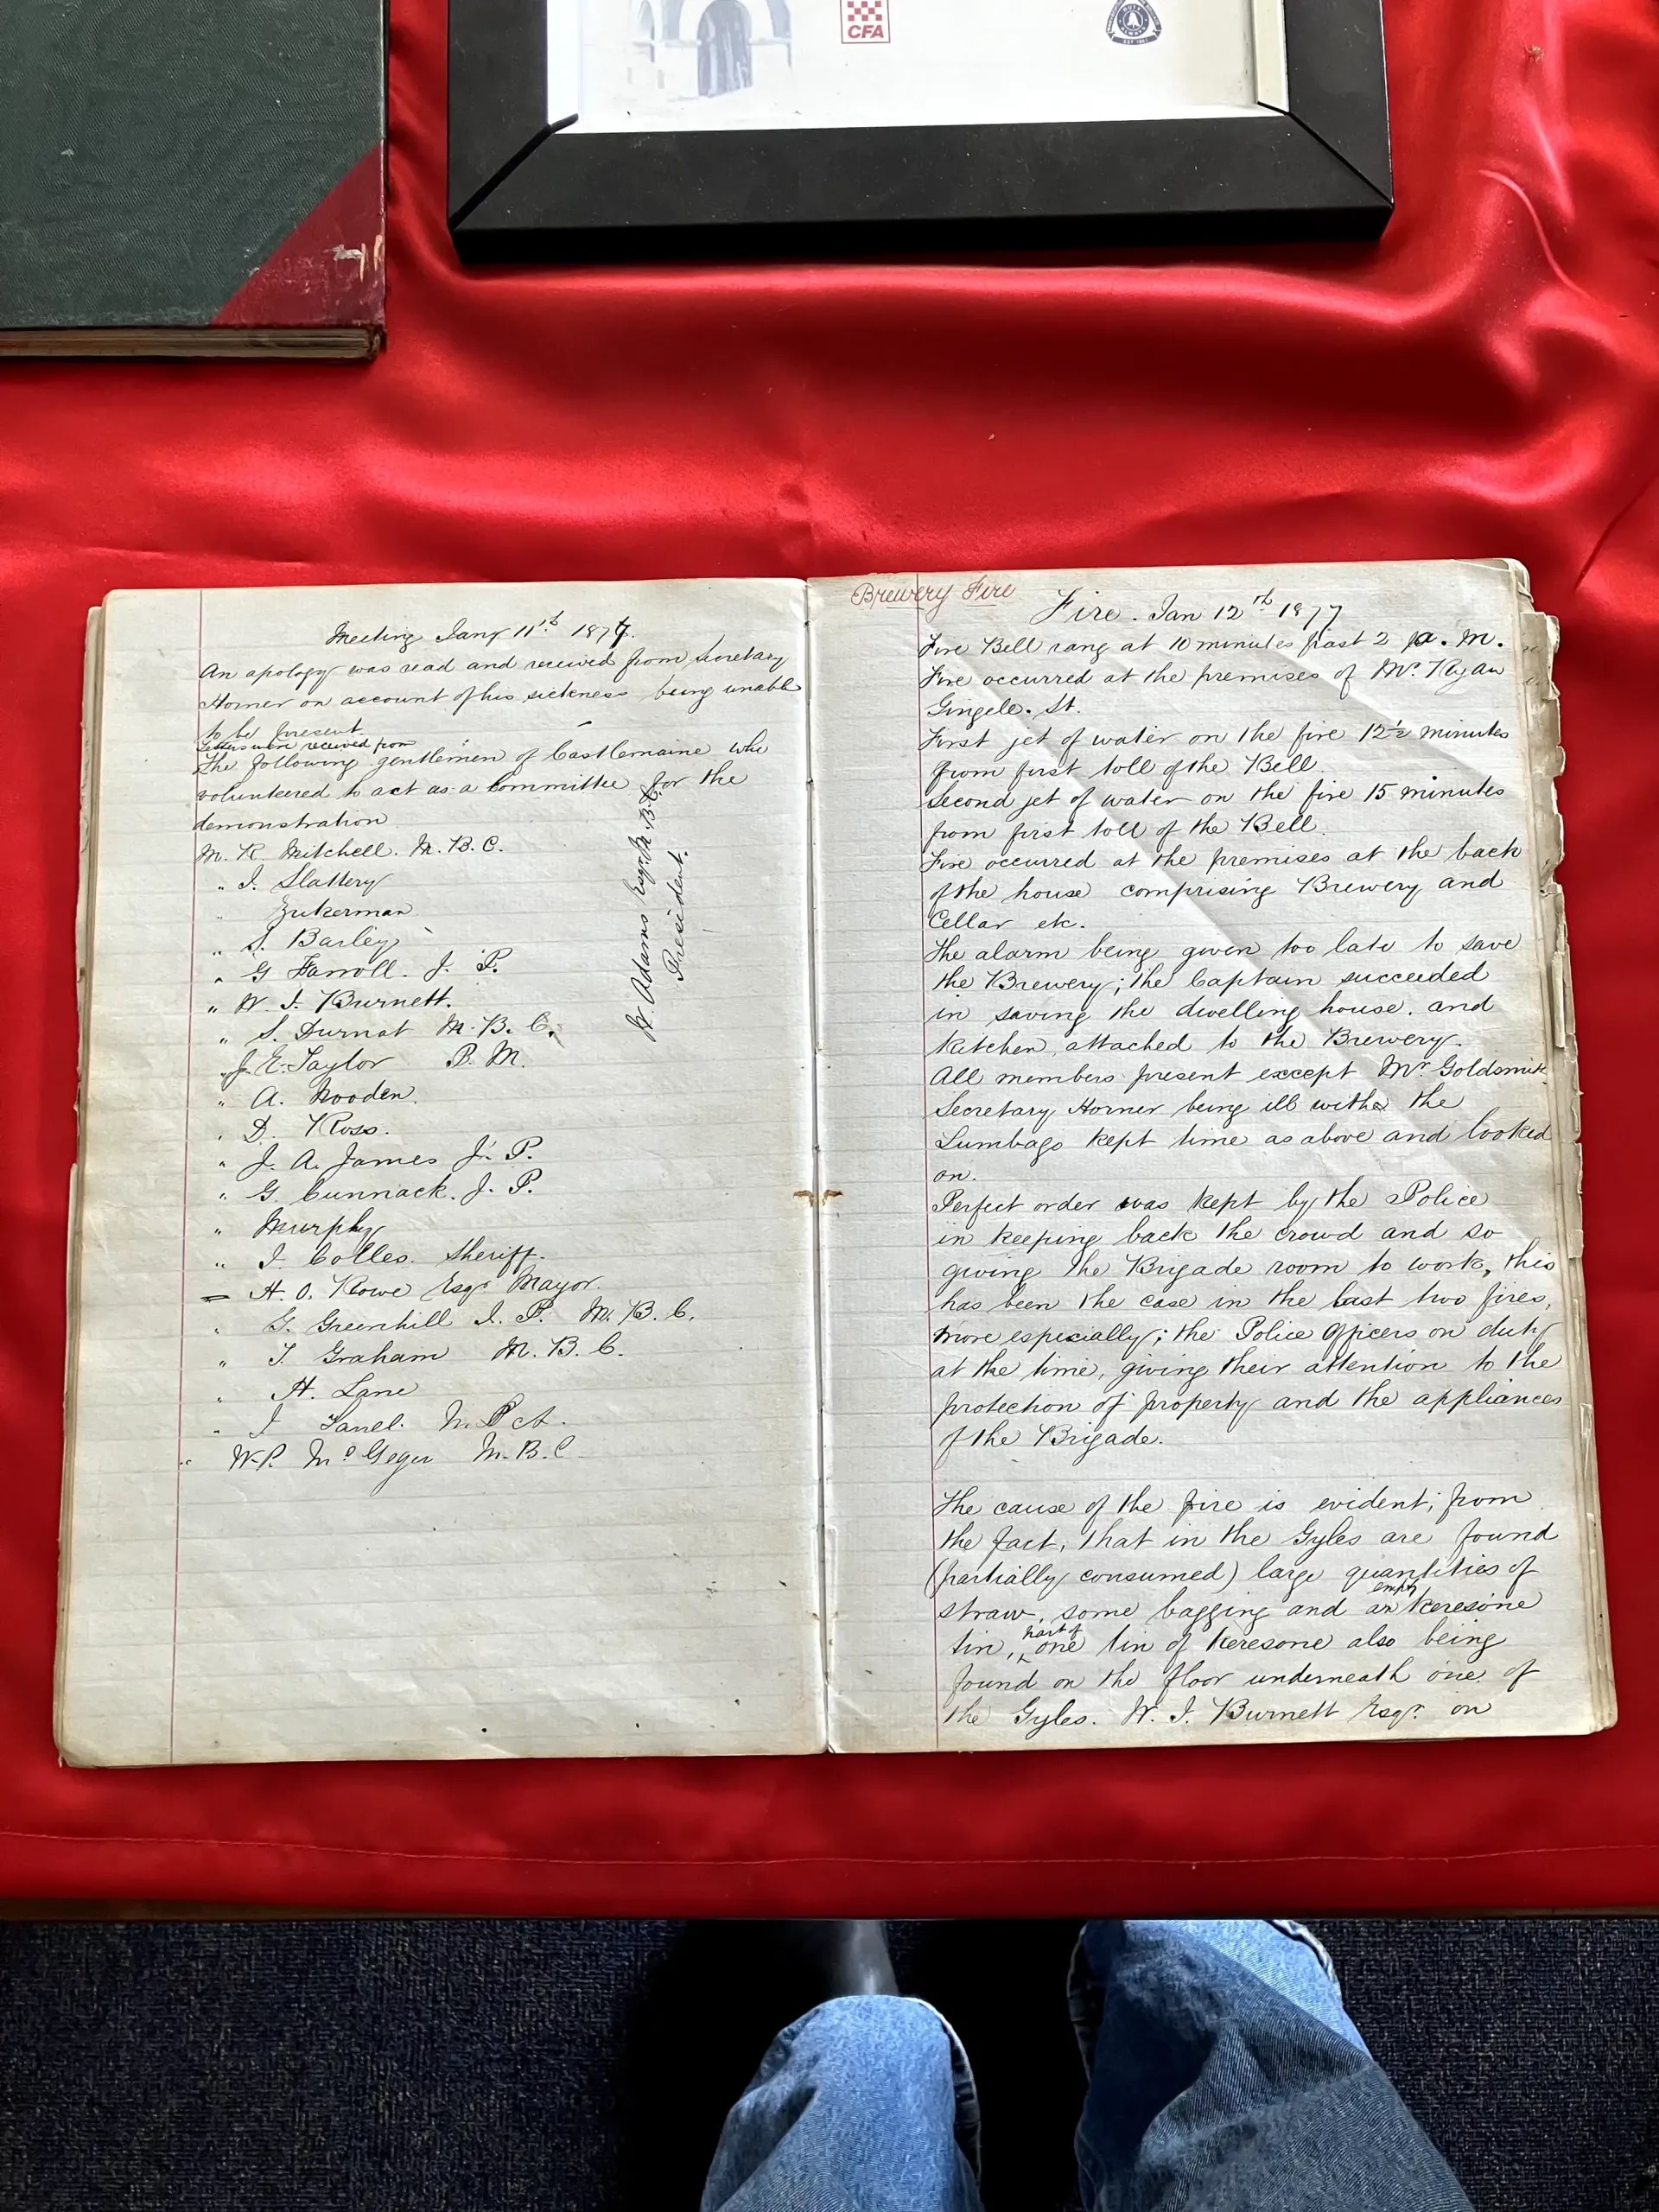 CFA
Meeting Jany 11th 1877.
An apology was read and received from Secretary
Horner on account of his sickness being unable
to be present
Letters were received from
The following gentlemen of Castlemaine who
volunteered to act as a Committee for the
demonstration
M. R. Mitchell. M.B.C.
" J. Slattery
" Zukerman
" S. Barley
" G Farroll. J. P.
" W. J. Burnett.
" S. Durnat M.B.C.
" J. E. Taylor P. M.
" A. Wooden.
" D. Ross.
" J. A. James J. P.
" G. Cunnack. J. P.
" Murphy
" J. Colles. Sheriff.
" H. O. Rowe Esqr Mayor.
" G. Greenhill J. P. M.B.C.
" T. Graham M.B.C.
" H. Lane
" J
" W. P. M.B.C.
W. Adams Esqr M.B.C.
President.
Brewery Fire
Fire. Jan 12th 1877
Fire Bell rang at 10 minutes past 2 a.m.
Fire occurred at the premises of Mr. Ryan
Gingele. St.
First jet of water on the fire 12½ minutes
from first toll of the Bell
Second jet of water on the fire 15 minutes
from first toll of the Bell.
Fire occurred at the premises at the back
of the house comprising Brewery and
Cellar etc.
The alarm being given too late to save
the Brewery; the Captain succeeded
in saving the dwelling house, and
Kitchen, attached to the Brewery.
All members present except Mr Goldsmith
Secretary Horner being ill with the
Lumbago kept time as above and looked
on.
Perfect order was kept by the Police
in keeping back the crowd and so
giving the Brigade room to work, this
has been the case in the last two fires,
more especially; the Police Officers on duty
at the time, giving their attention to the
protection of property and the appliances
of the Brigade.
The cause of the fire is evident; from
the fact, that in the Gyles are found
(partially consumed) large quantities of
straw, some bagging and an empty Keresone
tin, part of one tin of Keresone also being
found on the floor underneath one of
the Gyles. W. J. Burnett Esqr. on